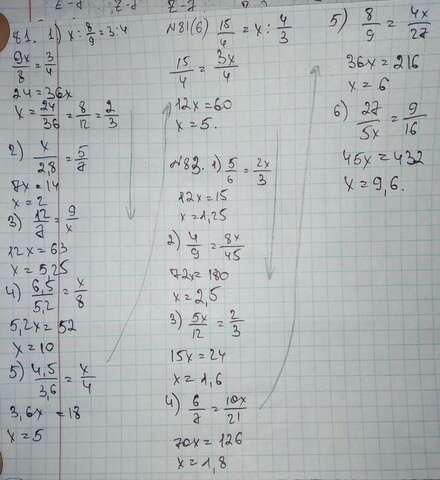 81. 1) x : 8/9 = 3 : 4
9x/8 = 3/4
24 = 36x
x = 24/36 = 8/12 = 2/3
2) x/2,8 = 5/7
7x = 14
x = 2
3) 12/7 = 9/x
12x = 63
x = 5,25
4) 6,5/5,2 = x/8
5,2x = 52
x = 10
5) 4,5/3,6 = x/4
3,6x = 18
x = 5
№81(6) 15/4 = x : 4/3
15/4 = 3x/4
12x = 60
x = 5.
№83. 1) 5/6 = 2x/3
12x = 15
x = 1,25
2) 4/9 = 8x/45
72x = 180
x = 2,5
3) 5x/12 = 2/3
15x = 24
x = 1,6
4) 6/7 = 10x/21
70x = 126
x = 1,8
5) 8/9 = 4x/27
36x = 216
x = 6
6) 27/5x = 9/16
45x = 432
x = 9,6.